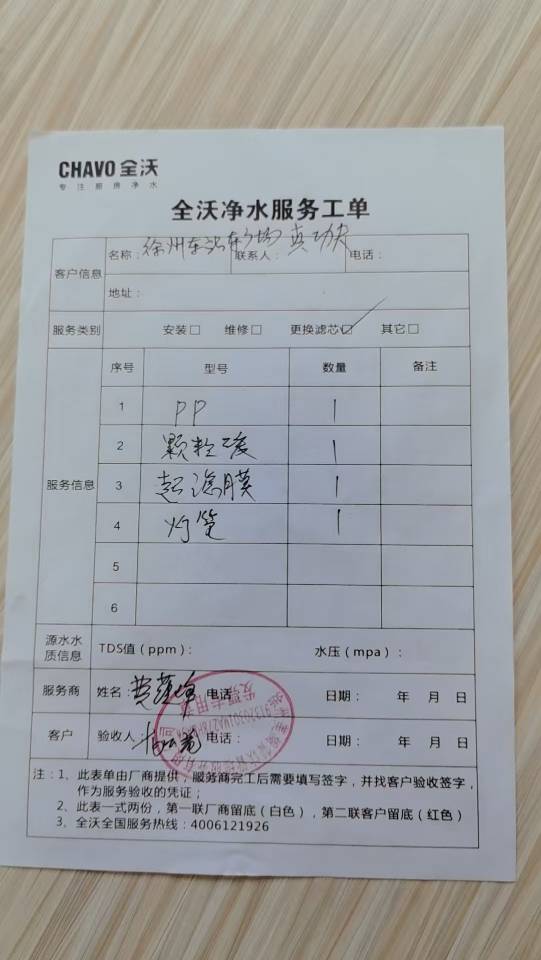 CHAVO 全沃
专注厨房净水
全沃净水服务工单
客户信息 名称: 徐州东站东广场 真功夫 联系人: 电话:
地址:
服务类别 安装□ 维修□ 更换滤芯☑ 其它□
服务信息 序号 型号 数量 备注
1 PP 1
2 颗粒 1
3 起滤膜 1
4 灯管 1
5
6
源水水质信息 TDS值(ppm): 水压(mpa):
服务商 姓名: 电话: 日期: 年 月 日
客户 验收人: 电话: 日期: 年 月 日
发票专用章
注:1、此表单由厂商提供;服务商完工后需要填写签字,并找客户验收签字,
作为服务验收的凭证;
2、此表一式两份,第一联厂商留底(白色),第二联客户留底(红色)
3、全沃全国服务热线:4006121926